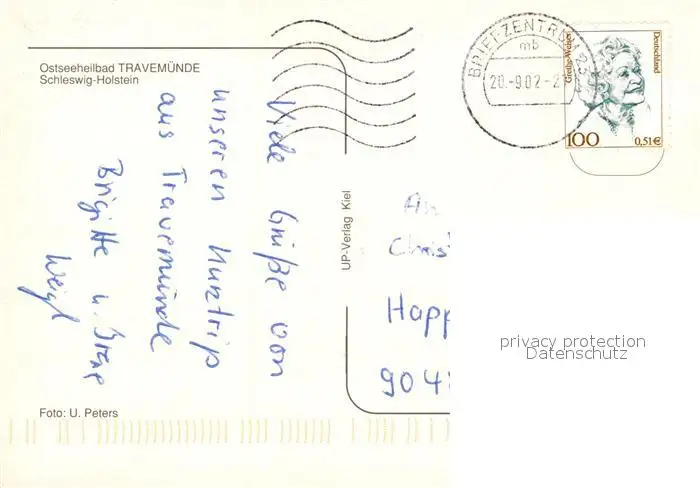 Ostseeheilbad TRAVEMÜNDE
Schleswig-Holstein
Viele Grüße von
unseren Kurztrip
aus Travemünde
Brigitte u.
Weigl
Foto: U. Peters
UP-Verlag Kiel
BRIEFZENTRUM 23
mb
20.-9.02-2
Grethe Weiser
Deutschland
100
0,51€
An
Chris
Happ
904
privacy protection
Datenschutz